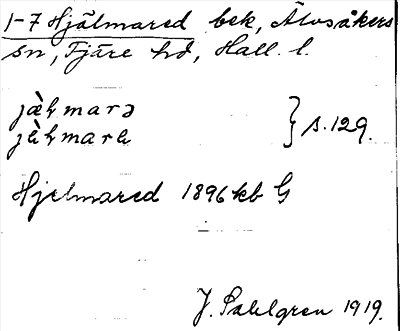 1-7 Hjälmared bek, Älvsåkers
sn, Fjäre hd, Hall. l.
jæ̀lmarə
jæ̀lmara } s. 129.
Hjelmared 1896 kb G
J. Sahlgren 1919.